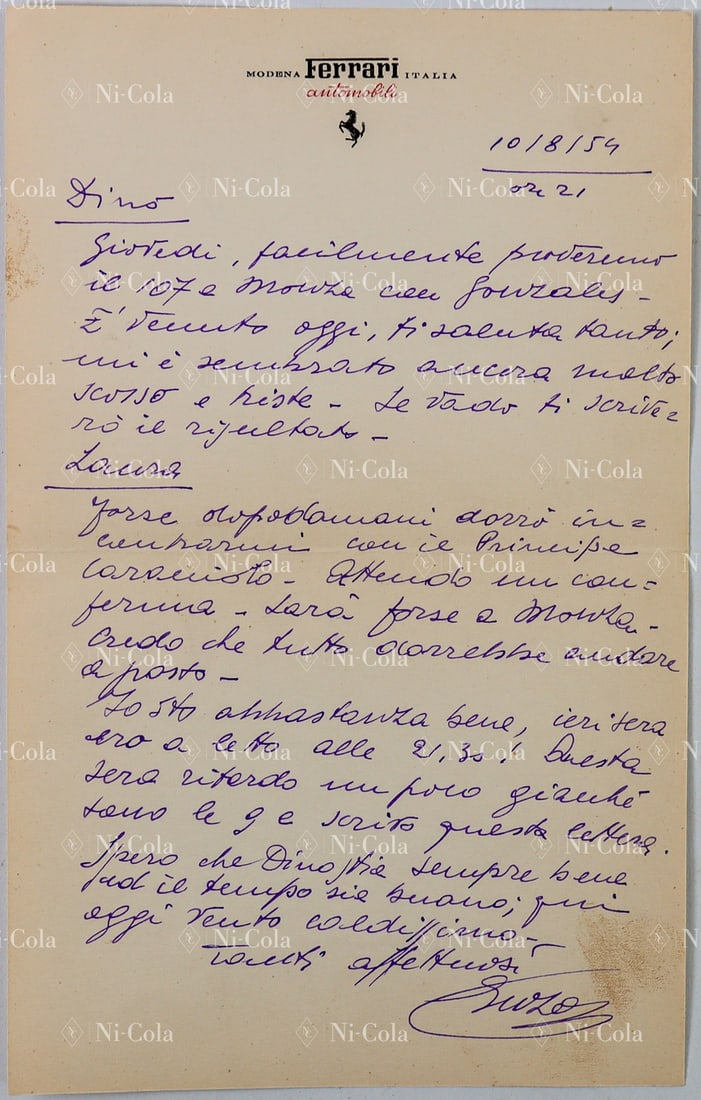 MODENA Ferrari ITALIA
automobili
10/8/54
ore 21
Dino
Giovedi, facilmente proveremo
il 107 a Monza con Gonzales -
E' venuto oggi, ti saluta tanto;
mi è sembrato ancora molto
scosso e triste - Se vado ti scrive=
rò il risultato -
Laura
Forse dopodomani dovrò in=
contrarmi con il Principe
Caraciolo - Attendo un con=
ferma - Sarà forse a Monza -
Credo che tutto dovrebbe andare
a posto -
Io sto abbastanza bene, ieri sera
ero a letto alle 21,30! Questa
sera ritardo un poco giacché
sono le 9 e scrivo questa lettera.
Spero che Dino stia sempre bene
ed il tempo sia buono; qui
oggi vento caldissimo -
Tanti affettuosi
Enzo
Ni-Cola